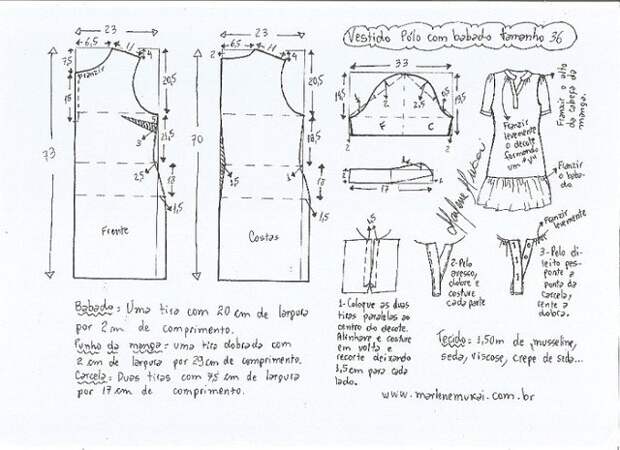 Vestido Pólo com babado tamanho 36
23
6,5
11
4
7,5
Franzir
20,5
15
73
3
2,5
18
1,5
Frente
23
6,5
11
4
20,5
70
18,5
3
2,5
18
1,5
Costas
33
2
2,5
F
C
2
2
2
17
Franzir o alto
da cabeça da
manga.
Franzir
levemente
o decote
formando
um "u"
Franzir
o baba
do.
Marlene Mukai
1,5
Franzir
levemente
1-Coloque as duas
tiras paralelas ao
centro do decote.
Alinhave e costure
em volta e
recorte deixando
1,5cm para cada
lado.
2-Pelo
avesso,
dobre e
costure
cada parte
3-Pelo di-
reito pes-
ponte a
ponta da
carcela,
rente a
dobra.
Babado: Uma tira com 20 cm de largura
por 2m de comprimento.
Punho da manga: uma tira dobrada com
2 cm de largura por 29 cm de comprimento.
Carcela: Duas tiras com 7,5 cm de largura
por 17 cm de comprimento.
Tecido: 1,50m de musseline,
seda, viscose, crepe de seda...
www.marlenemukai.com.br